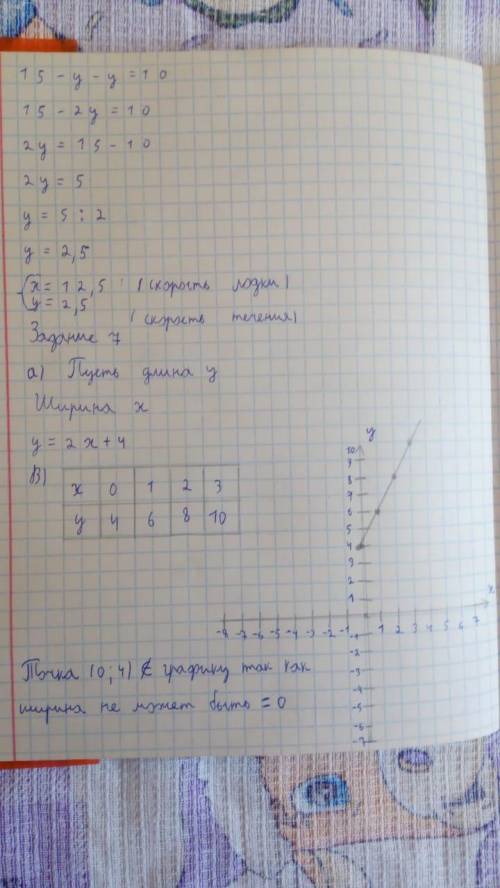 15 - y - y = 10
15 - 2y = 10
2y = 15 - 10
2y = 5
y = 5 : 2
y = 2,5
{ x = 12,5 (скорость лодки)
y = 2,5 (скорость течения)
Задание 7
а) Пусть длина y
Ширина x
y = 2x + 4
В)
x 0 1 2 3
y 4 6 8 10
y
10
9
8
7
6
5
4
3
2
1
x
-8 -7 -6 -5 -4 -3 -2 -1 1 2 3 4 5 6 7
-1
-2
-3
-4
-5
-6
-7
Точка (0; 4) ∉ графику так как
ширина не может быть = 0